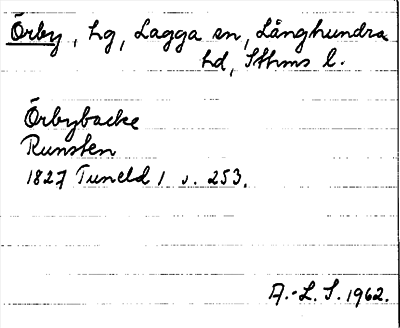 Örby, hg, Lagga sn, Långhundra
hd, Sthms l.
Örbybacke
Runsten
1827 Tuneld 1 s. 253.
A.-L. S. 1962.